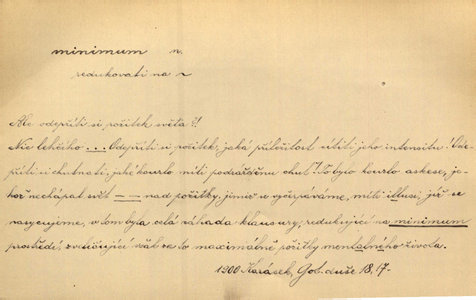 minimum n.
redukovati na ~
Ale odepříti si požitek světa?!
Nic lehčího ... Odepříti si požitek, jaká příležitost cítiti jeho intensitu! Ode-
příti si chutnati: jaké kouzlo míti podrážděnu chuť! To bylo kouzlo askese, je-
hož nechápal svět — — nad požitky, jimiž se vyčerpáváme, míti illusi, jíž se
nasycujeme, v tom byla celá záhada klausury, redukující na minimum
prostředí, ale to maximálně požitky mentalného života.
1900 Karásek, Got. duše 18.17.